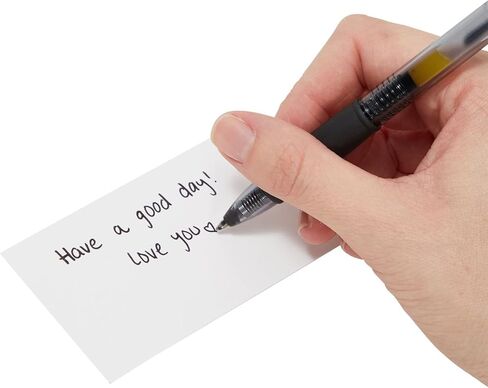 Have a good day!
love you♡